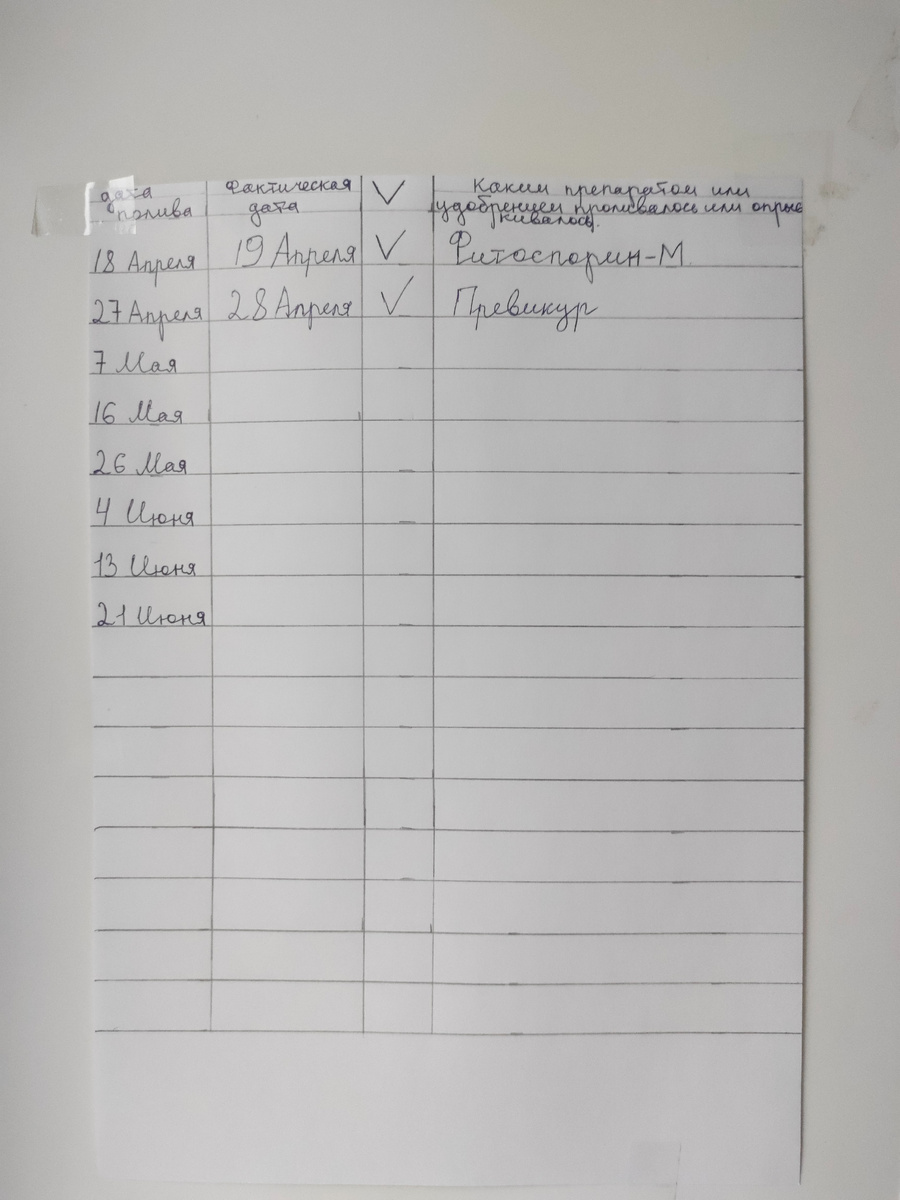 дата
полива
Фактическая
дата
✓
Каким препаратом или
удобрением проливалось или опрыс
кивалось.
18 Апреля 19 Апреля ✓ Фитоспорин-М.
27 Апреля 28 Апреля ✓ Превикур
7 Мая
16 Мая
26 Мая
4 Июня
13 Июня
21 Июня